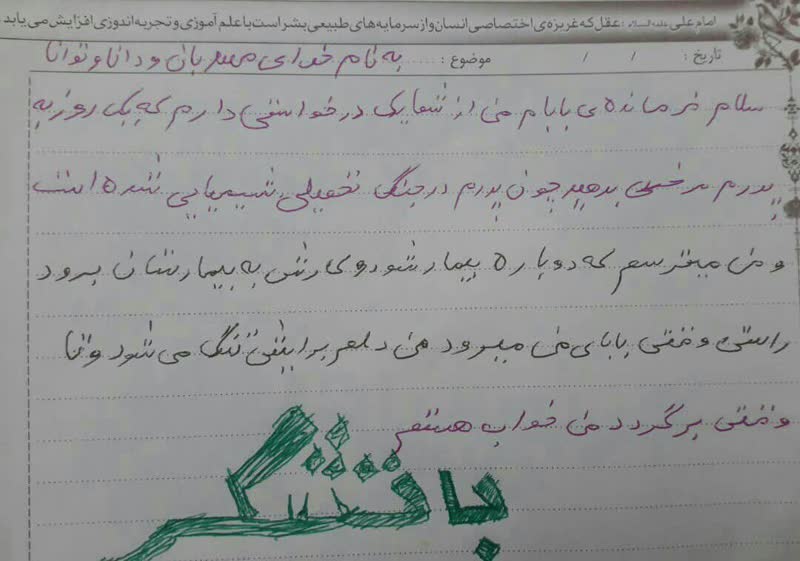 امام علی علیه السلام: عقل که غریزه‌ی اختصاصی انسان و از سرمایه‌های طبیعی بشر است با علم آموزی و تجربه اندوزی افزایش می یابد
تاریخ : / / موضوع : به نام خدای مهربان و دانا و توانا
سلام فرمانده‌ی بابام من از شما یک درخواستی دارم که یک روز به
پدرم مرخصی بدهید چون پدرم در جنگ تحمیلی شیمیایی شده است
و من میترسم که دوباره بیمار شود و کارش به بیمارستان برود
راستی وقتی بابای من میرود من دلم برایش تنگ می شود و تا
وقتی برگردد من خواب هستم
با تشکر